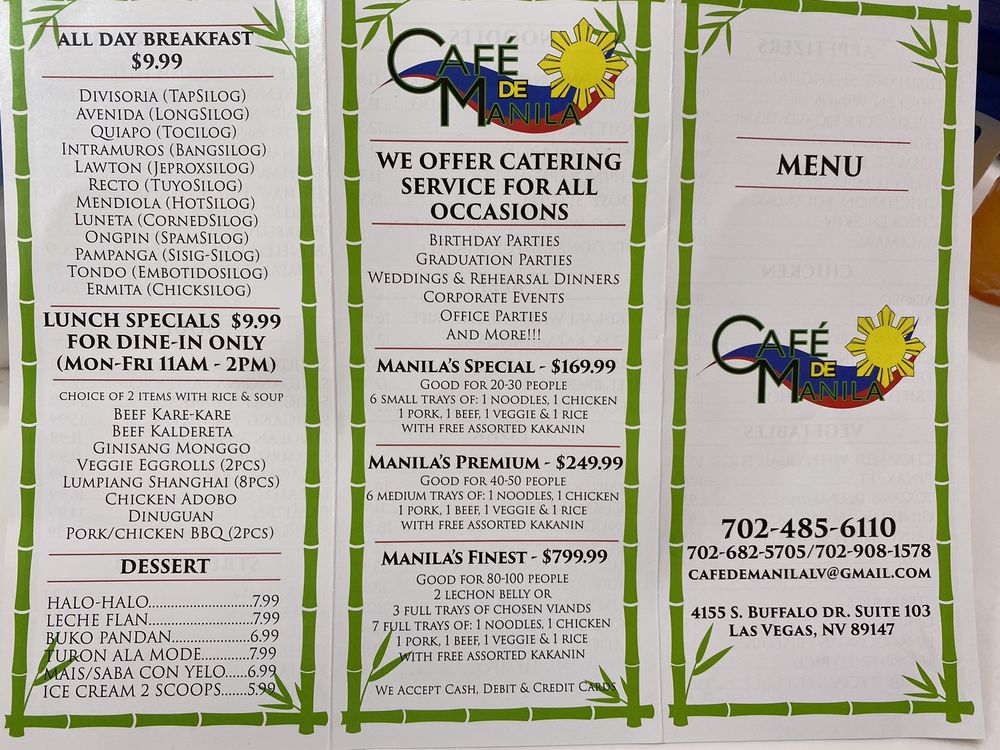 ALL DAY BREAKFAST
$9.99
DIVISORIA (TAPSILOG)
AVENIDA (LONGSILOG)
QUIAPO (TOCILOG)
INTRAMUROS (BANGSILOG)
LAWTON (JEPROXSILOG)
RECTO (TUYOSILOG)
MENDIOLA (HOTSILOG)
LUNETA (CORNEDSILOG)
ONGPIN (SPAMSILOG)
PAMPANGA (SISIG-SILOG)
TONDO (EMBOTIDOSILOG)
ERMITA (CHICKSILOG)
LUNCH SPECIALS $9.99
FOR DINE-IN ONLY
(MON-FRI 11AM - 2PM)
CHOICE OF 2 ITEMS WITH RICE & SOUP
BEEF KARE-KARE
BEEF KALDERETA
GINISANG MONGGO
VEGGIE EGGROLLS (2PCS)
LUMPIANG SHANGHAI (8PCS)
CHICKEN ADOBO
DINUGUAN
PORK/CHICKEN BBQ (2PCS)
DESSERT
HALO-HALO..........................7.99
LECHE FLAN..........................7.99
BUKO PANDAN.....................6.99
TURON ALA MODE............7.99
MAIS/SABA CON YELO.....6.99
ICE CREAM 2 SCOOPS......5.99
CAFÉ
DE
MANILA
WE OFFER CATERING
SERVICE FOR ALL
OCCASIONS
BIRTHDAY PARTIES
GRADUATION PARTIES
WEDDINGS & REHEARSAL DINNERS
CORPORATE EVENTS
OFFICE PARTIES
AND MORE!!!
MANILA'S SPECIAL - $169.99
GOOD FOR 20-30 PEOPLE
6 SMALL TRAYS OF: 1 NOODLES, 1 CHICKEN
1 PORK, 1 BEEF, 1 VEGGIE & 1 RICE
WITH FREE ASSORTED KAKANIN
MANILA'S PREMIUM - $249.99
GOOD FOR 40-50 PEOPLE
6 MEDIUM TRAYS OF: 1 NOODLES, 1 CHICKEN
1 PORK, 1 BEEF, 1 VEGGIE & 1 RICE
WITH FREE ASSORTED KAKANIN
MANILA'S FINEST - $799.99
GOOD FOR 80-100 PEOPLE
2 LECHON BELLY OR
3 FULL TRAYS OF CHOSEN VIANDS
7 FULL TRAYS OF: 1 NOODLES, 1 CHICKEN
1 PORK, 1 BEEF, 1 VEGGIE & 1 RICE
WITH FREE ASSORTED KAKANIN
WE ACCEPT CASH, DEBIT & CREDIT CARDS
MENU
CAFÉ
DE
MANILA
702-485-6110
702-682-5705/702-908-1578
CAFEDEMANILALV@GMAIL.COM
4155 S. BUFFALO DR. SUITE 103
LAS VEGAS, NV 89147